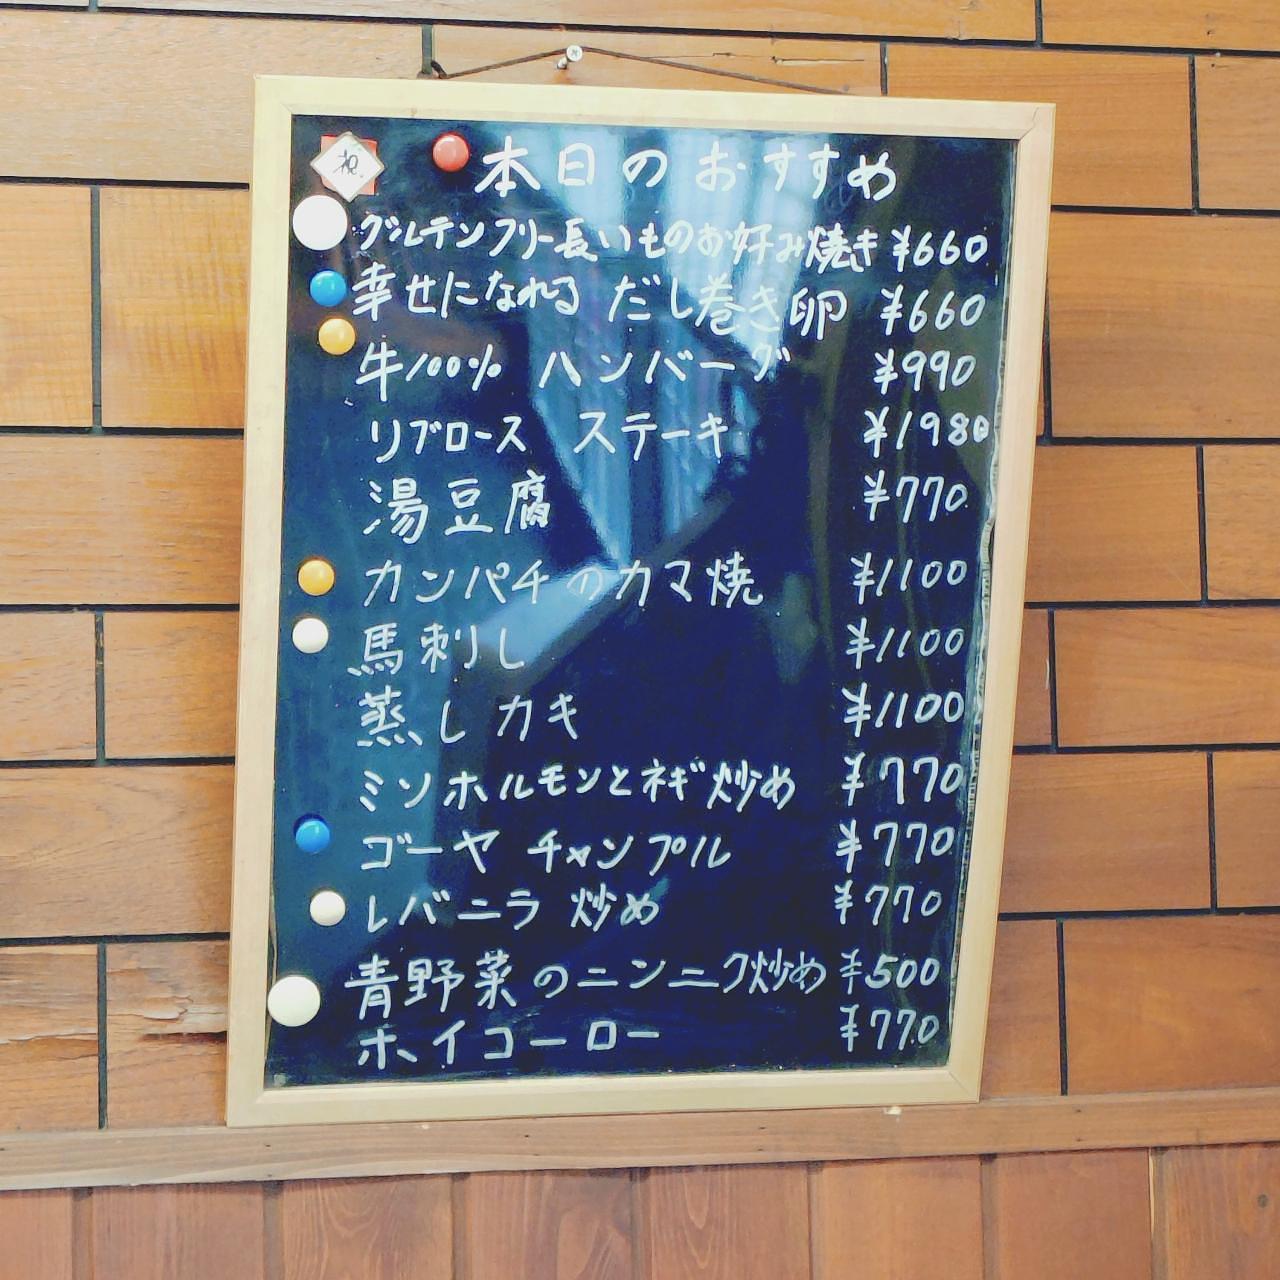 祝
本日のおすすめ
グルテンフリー長いものお好み焼き ¥660
幸せになれる だし巻き卵 ¥660
牛100% ハンバーグ ¥990
リブロース ステーキ ¥1980
湯豆腐 ¥770
カンパチのカマ焼 ¥1100
馬刺し ¥1100
蒸しカキ ¥1100
ミソホルモンとネギ炒め ¥770
ゴーヤ チャンプル ¥770
レバニラ 炒め ¥770
青野菜のニンニク炒め ¥500
ホイコーロー ¥770